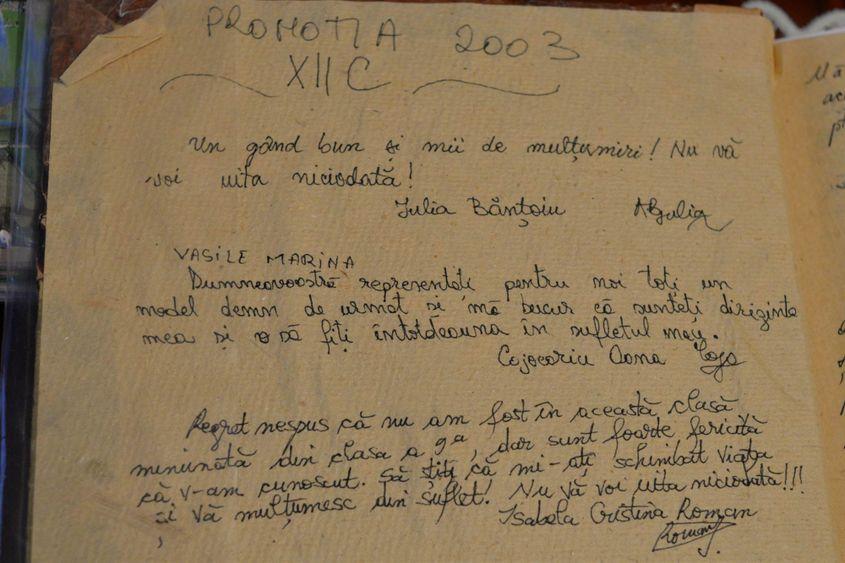 PROMOTIA 2003
XII C
Un gând bun și mii de mulțumiri! Nu vă
voi uita niciodată!
Iulia Bănțoiu
VASILE MARINA
Dumneavoastră reprezentați pentru noi toți un
model demn de urmat și mă bucur că sunteți diriginta
mea și o să fiți întotdeauna în sufletul meu.
Cojocariu Oana
Regret nespus că nu am fost în această clasă
minunată din clasa a 9a, dar sunt foarte fericită
că v-am cunoscut. Să știți că mi-ați schimbat viața
și vă mulțumesc din suflet! Nu vă voi uita niciodată!!!
Isabela Cristina Roman
Roman